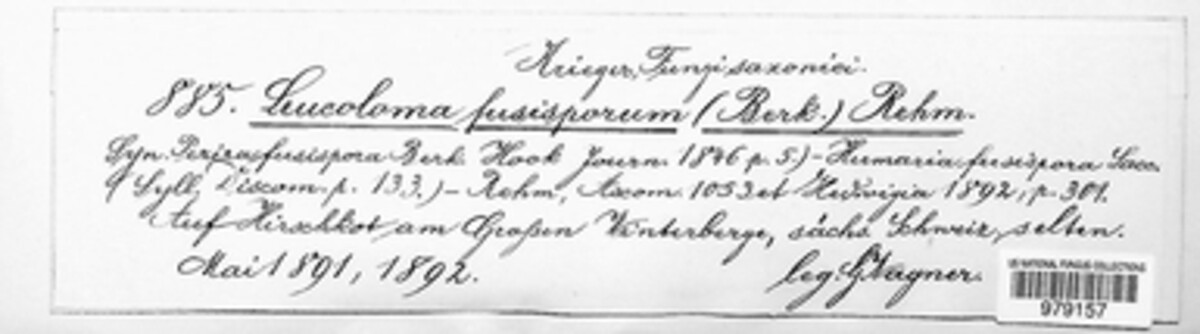 Krieger, Fungi saxonici.
885. Leucoloma fusisporum (Berk.) Rehm.
Syn. Peziza fusispora Berk. Hook Journ. 1846 p. 5.) – Humaria fusispora Sacc.
(Syll. Discom. p. 133.) – Rehm, Ascom. 1053 et Hedwigia 1892, p. 301.
Auf Hirschkot am Großen Winterberge, sächs. Schweiz, selten.
Mai 1891, 1892. leg. G. Wagner.
US NATIONAL FUNGUS COLLECTIONS
979157